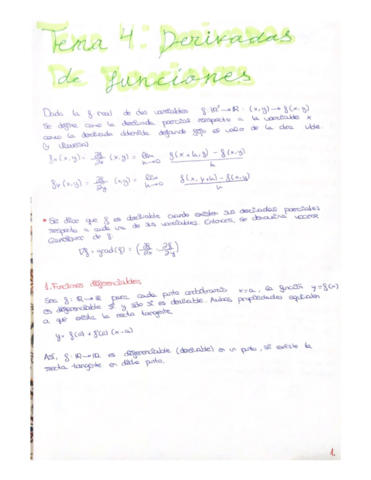 Tema 4: Derivadas
de funciones
Dada la f real de dos variables f: ℝ² → ℝ : (x,y) → f(x,y)
Se define como la derivada parcial respecto a la variable x
como la derivada obtenida dejando fijo el valor de la otra vble.
(y viceversa)
fx(x,y) = ∂f/∂x (x,y) = lim h→0 f(x+h,y) - f(x,y) / h
fy(x,y) = ∂f/∂y (x,y) = lim h→0 f(x,y+h) - f(x,y) / h
* Se dice que f es derivable cuando existen sus derivadas parciales
respecto a cada una de sus variables. Entonces, se denomina vector
Gradiente de f.
∇f = grad(f) = (∂f/∂x , ∂f/∂y)
1. Funciones diferenciables
Sea f: ℝ → ℝ para cada punto x=a, la función y=f(x)
es diferenciable sí y sólo sí es derivable. Ambas propiedades equivalen
a que exista la recta tangente.
y = f(a) + f'(a) (x-a)
Así, f: ℝ → ℝ es diferenciable (derivable) en un punto, si existe la
recta tangente en dicho punto.
1.